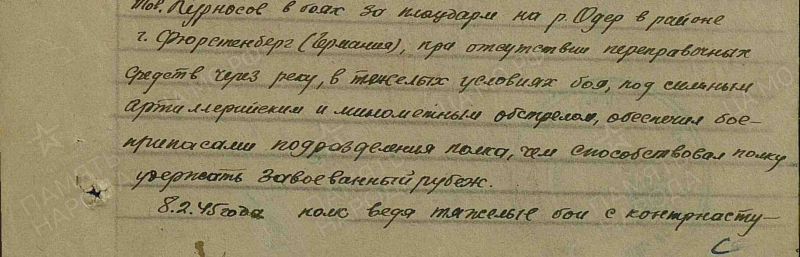 тов. Курносов в боях за плацдарм на р. Одер в районе
г. Фюрстенберг (Германия), при отсутствии переправочных
средств через реку, в тяжелых условиях боя, под сильным
артиллерийским и минометным обстрелом, обеспечил бое-
припасами подразделения полка, чем способствовал полку
удержать завоеванный рубеж.
8.2.45 года полк ведя тяжелые бои с контрнасту-